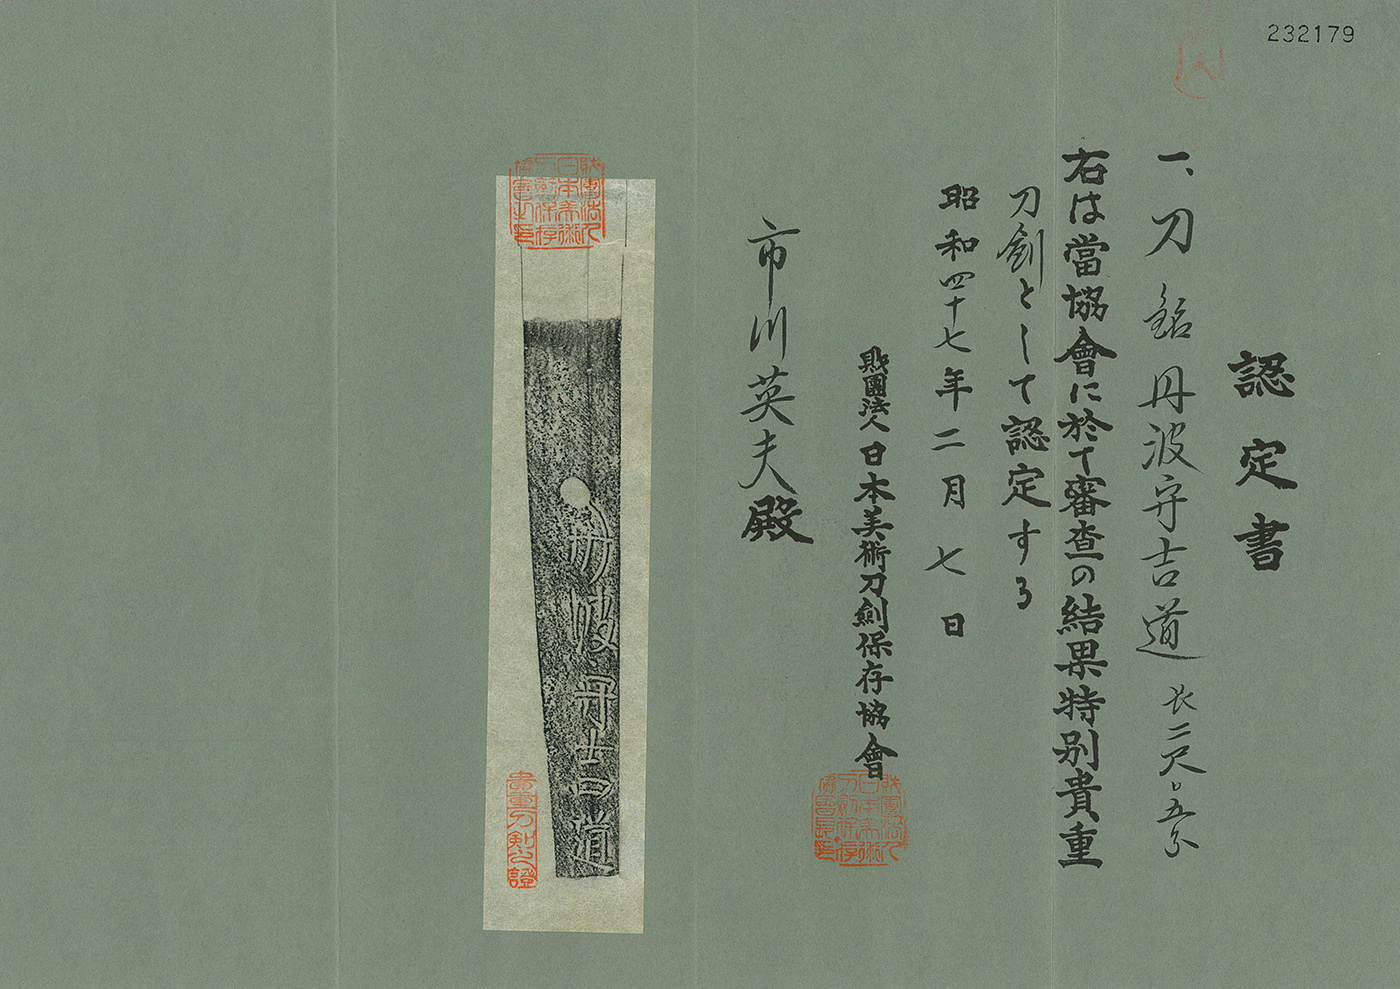 232179
認定書
一、刀 銘 丹波守吉道 長二尺〇五分
右は當協會に於て審査の結果特別貴重
刀劍として認定する
昭和四十七年二月七日
財團法人日本美術刀劍保存協會
市川英夫殿
丹波守吉道
貴重刀劍之證